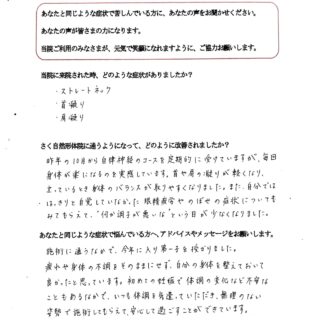 あなたと同じような症状で苦しんでいる方に、あなたの声をお聞かせください。
あなたの声が皆さまの力になります。
当院ご利用のみなさまが、元気で笑顔になれますように、ご協力お願いします。
当院に来院された時、どのような症状がありましたか？
・ストレートネック
・首凝り
・肩凝り
さく自然形体院に通うようになって、どのように改善されましたか？
昨年の10月から自律神経のコースを定期的に通っていますが、毎回
身体が楽になるのを実感しています。首や肩の凝りが軽くなり、
立っているとき身体のバランスが取りやすくなりました。また、自分では
はっきりと自覚していなかった眼精疲労やのぼせの症状についても
みてもらえて、“何か調子が悪いな”という日が少なくなりました。
あなたと同じような症状で悩んでいる方へ、アドバイスやメッセージをお願いします。
施術に通うなかで、今年に入り第一子を授かりました。
疲れや身体の不調をそのままにせず、自分の身体を整えておいて
良かったと思っています。初めての妊娠で体調の変化など不安な
こともあるなかで、いつも体調を気遣っていただき、無理のない
姿勢で施術してもらえて、安心して過ごすことができています。